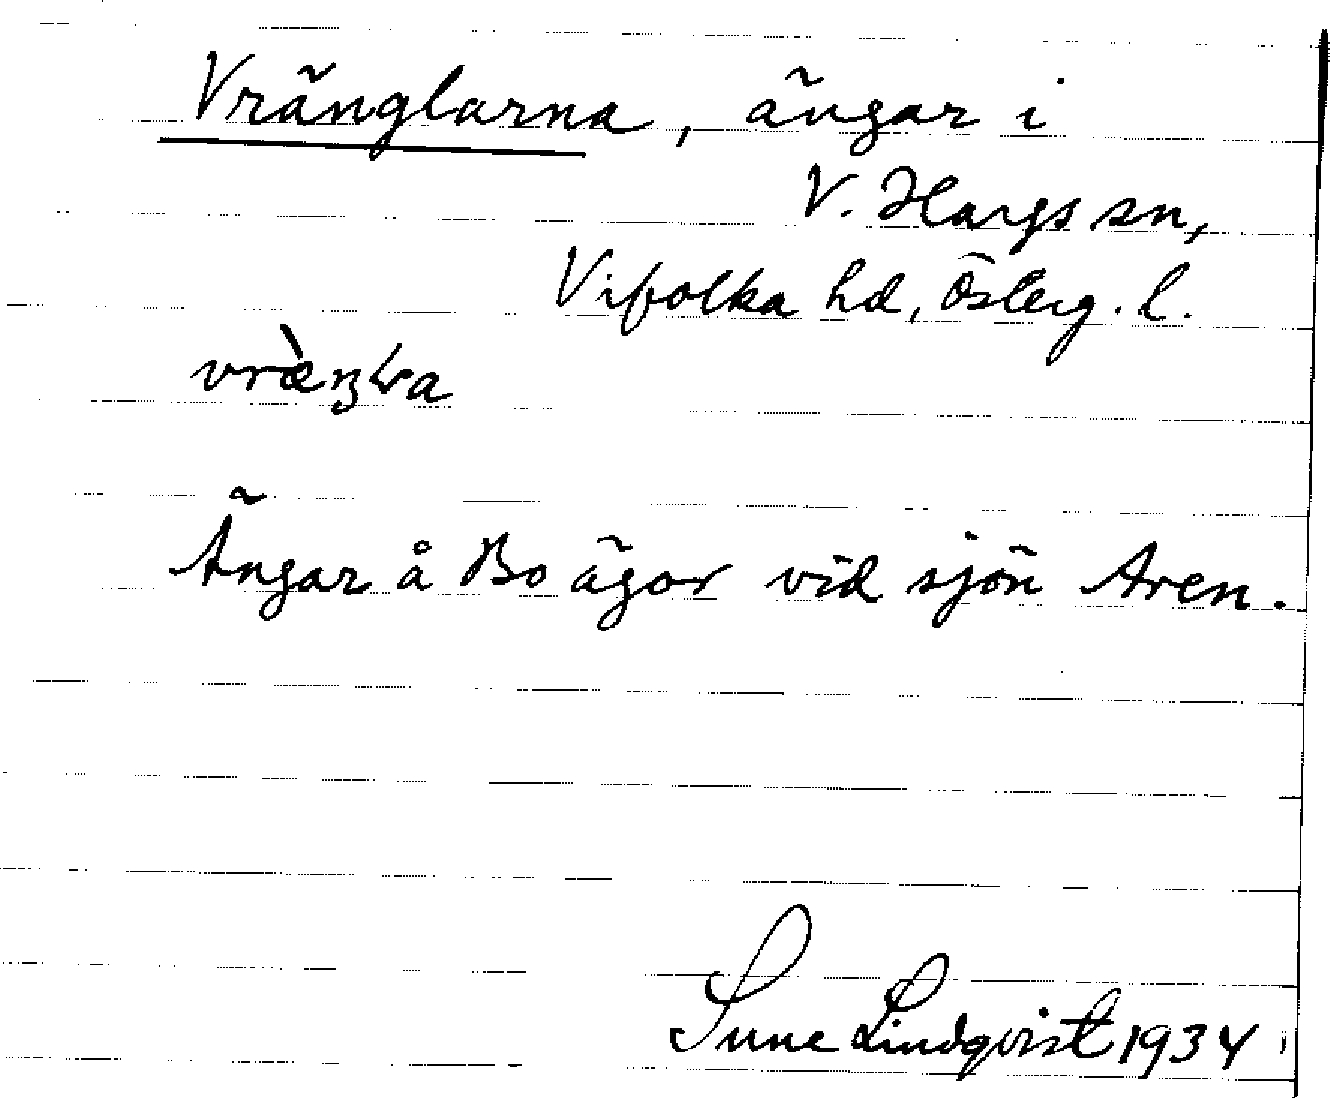 Vränglarna, ängar i
V. Hargs sn,
Vifolka hd, Österg. l.
Ängar å Bo ägor vid sjön Aren.
Sune Lindqvist 1934